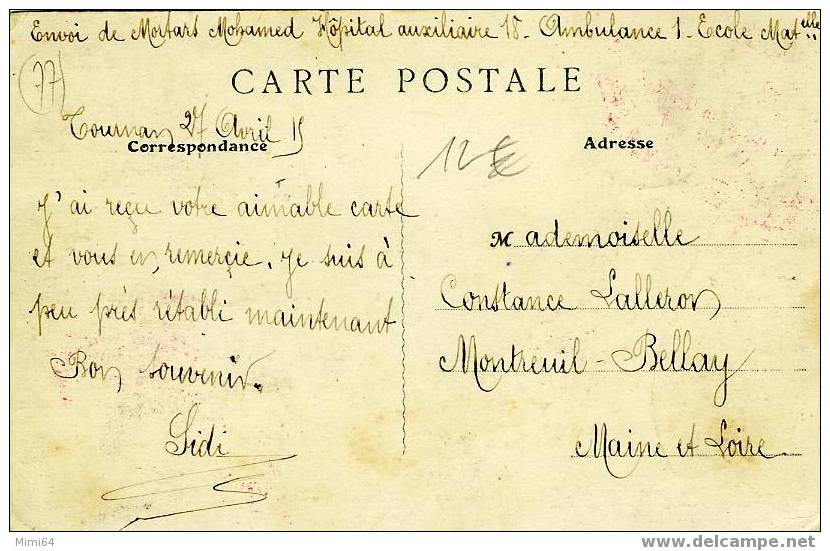 Envoi de Mortars Mohamed Hôpital auxiliaire 18 - Ambulance 1 - Ecole Mat elle
77
CARTE POSTALE
Tournan 27 Avril 15
Correspondance
J'ai reçu votre aimable carte
et vous en remerçie. Je suis à
peu près rétabli maintenant
Bon souvenir.
Sidi
12€
Adresse
Mademoiselle
Constance Lalleron
Montreuil-Bellay
Maine et Loire
Mimi64
delcampe.net